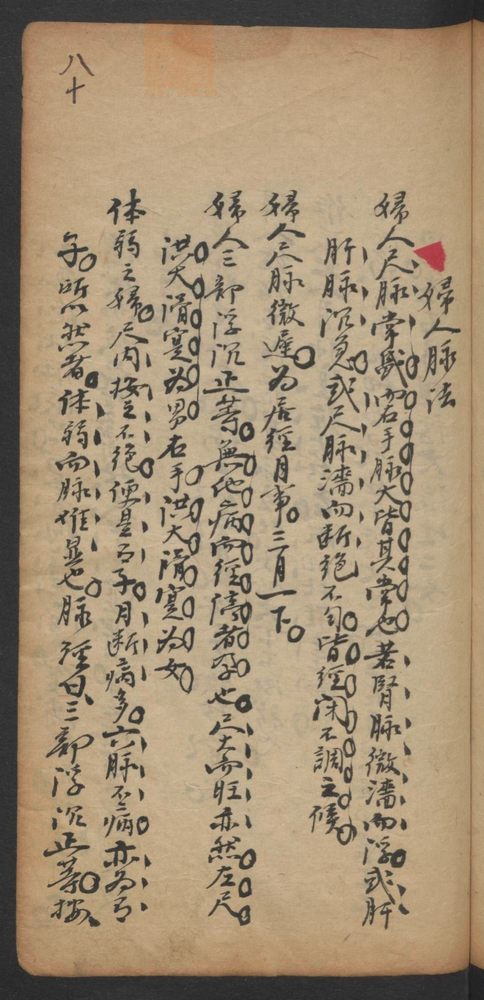 婦人脉法
婦人尺脉常盛而右手脉大皆其常也若腎脉微濇而浮或肝
肝脉沉急或尺脉濇而断絶不匀皆經闭不調之候
婦人尺脉微遲为居經月事三月一下
婦人三部浮沉正等無他病而經停者孕也尺大而旺亦然左尺
洪大滑寔为男右手洪大滑寔为女
体弱之婦尺内按之不絶便是有子月断病多六脉不病亦为有
子所以然者体弱而脉难显也脉經曰三部浮沉正等按
八十